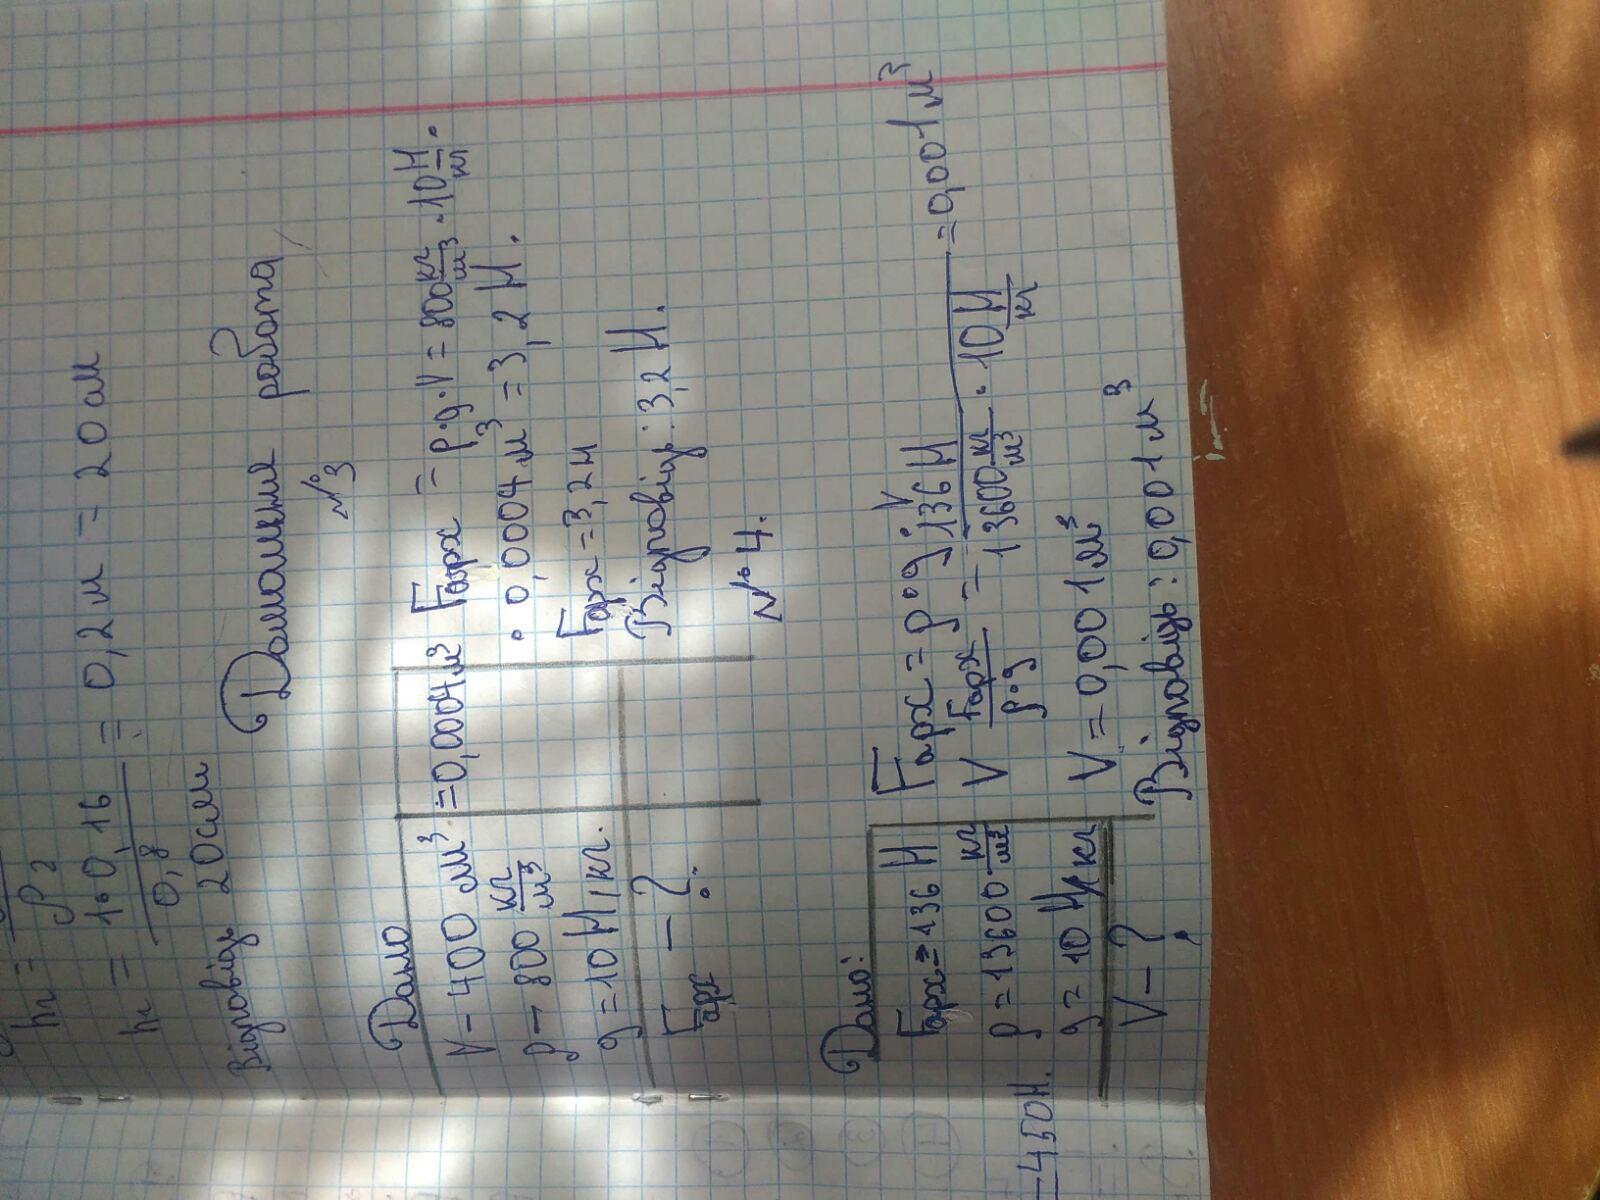 h₂ =
ρ₂
h₂ = 1·0,16 / 0,8 = 0,2 м = 20 см
Відповідь 20 см
Домашня робота
№3
Дано
V – 400 см³ = 0,0004 м³
ρ – 800 кг/м³
g = 10 Н/кг.
Fарх – ?
Fарх = ρ·g·V = 800 кг/м³ · 10 Н/кг ·
· 0,0004 м³ = 3,2 Н.
Fарх = 3,2 Н
Відповідь: 3,2 Н.
№4.
Дано:
Fарх = 136 Н
ρ = 13600 кг/м³
g = 10 Н/кг
V – ?
Fарх = ρ·g·V
V = Fарх / ρ·g = 136 Н / 13600 кг/м³ · 10 Н/кг = 0,001 м³
V = 0,001 м³
Відповідь: 0,001 м³
= 450 Н.